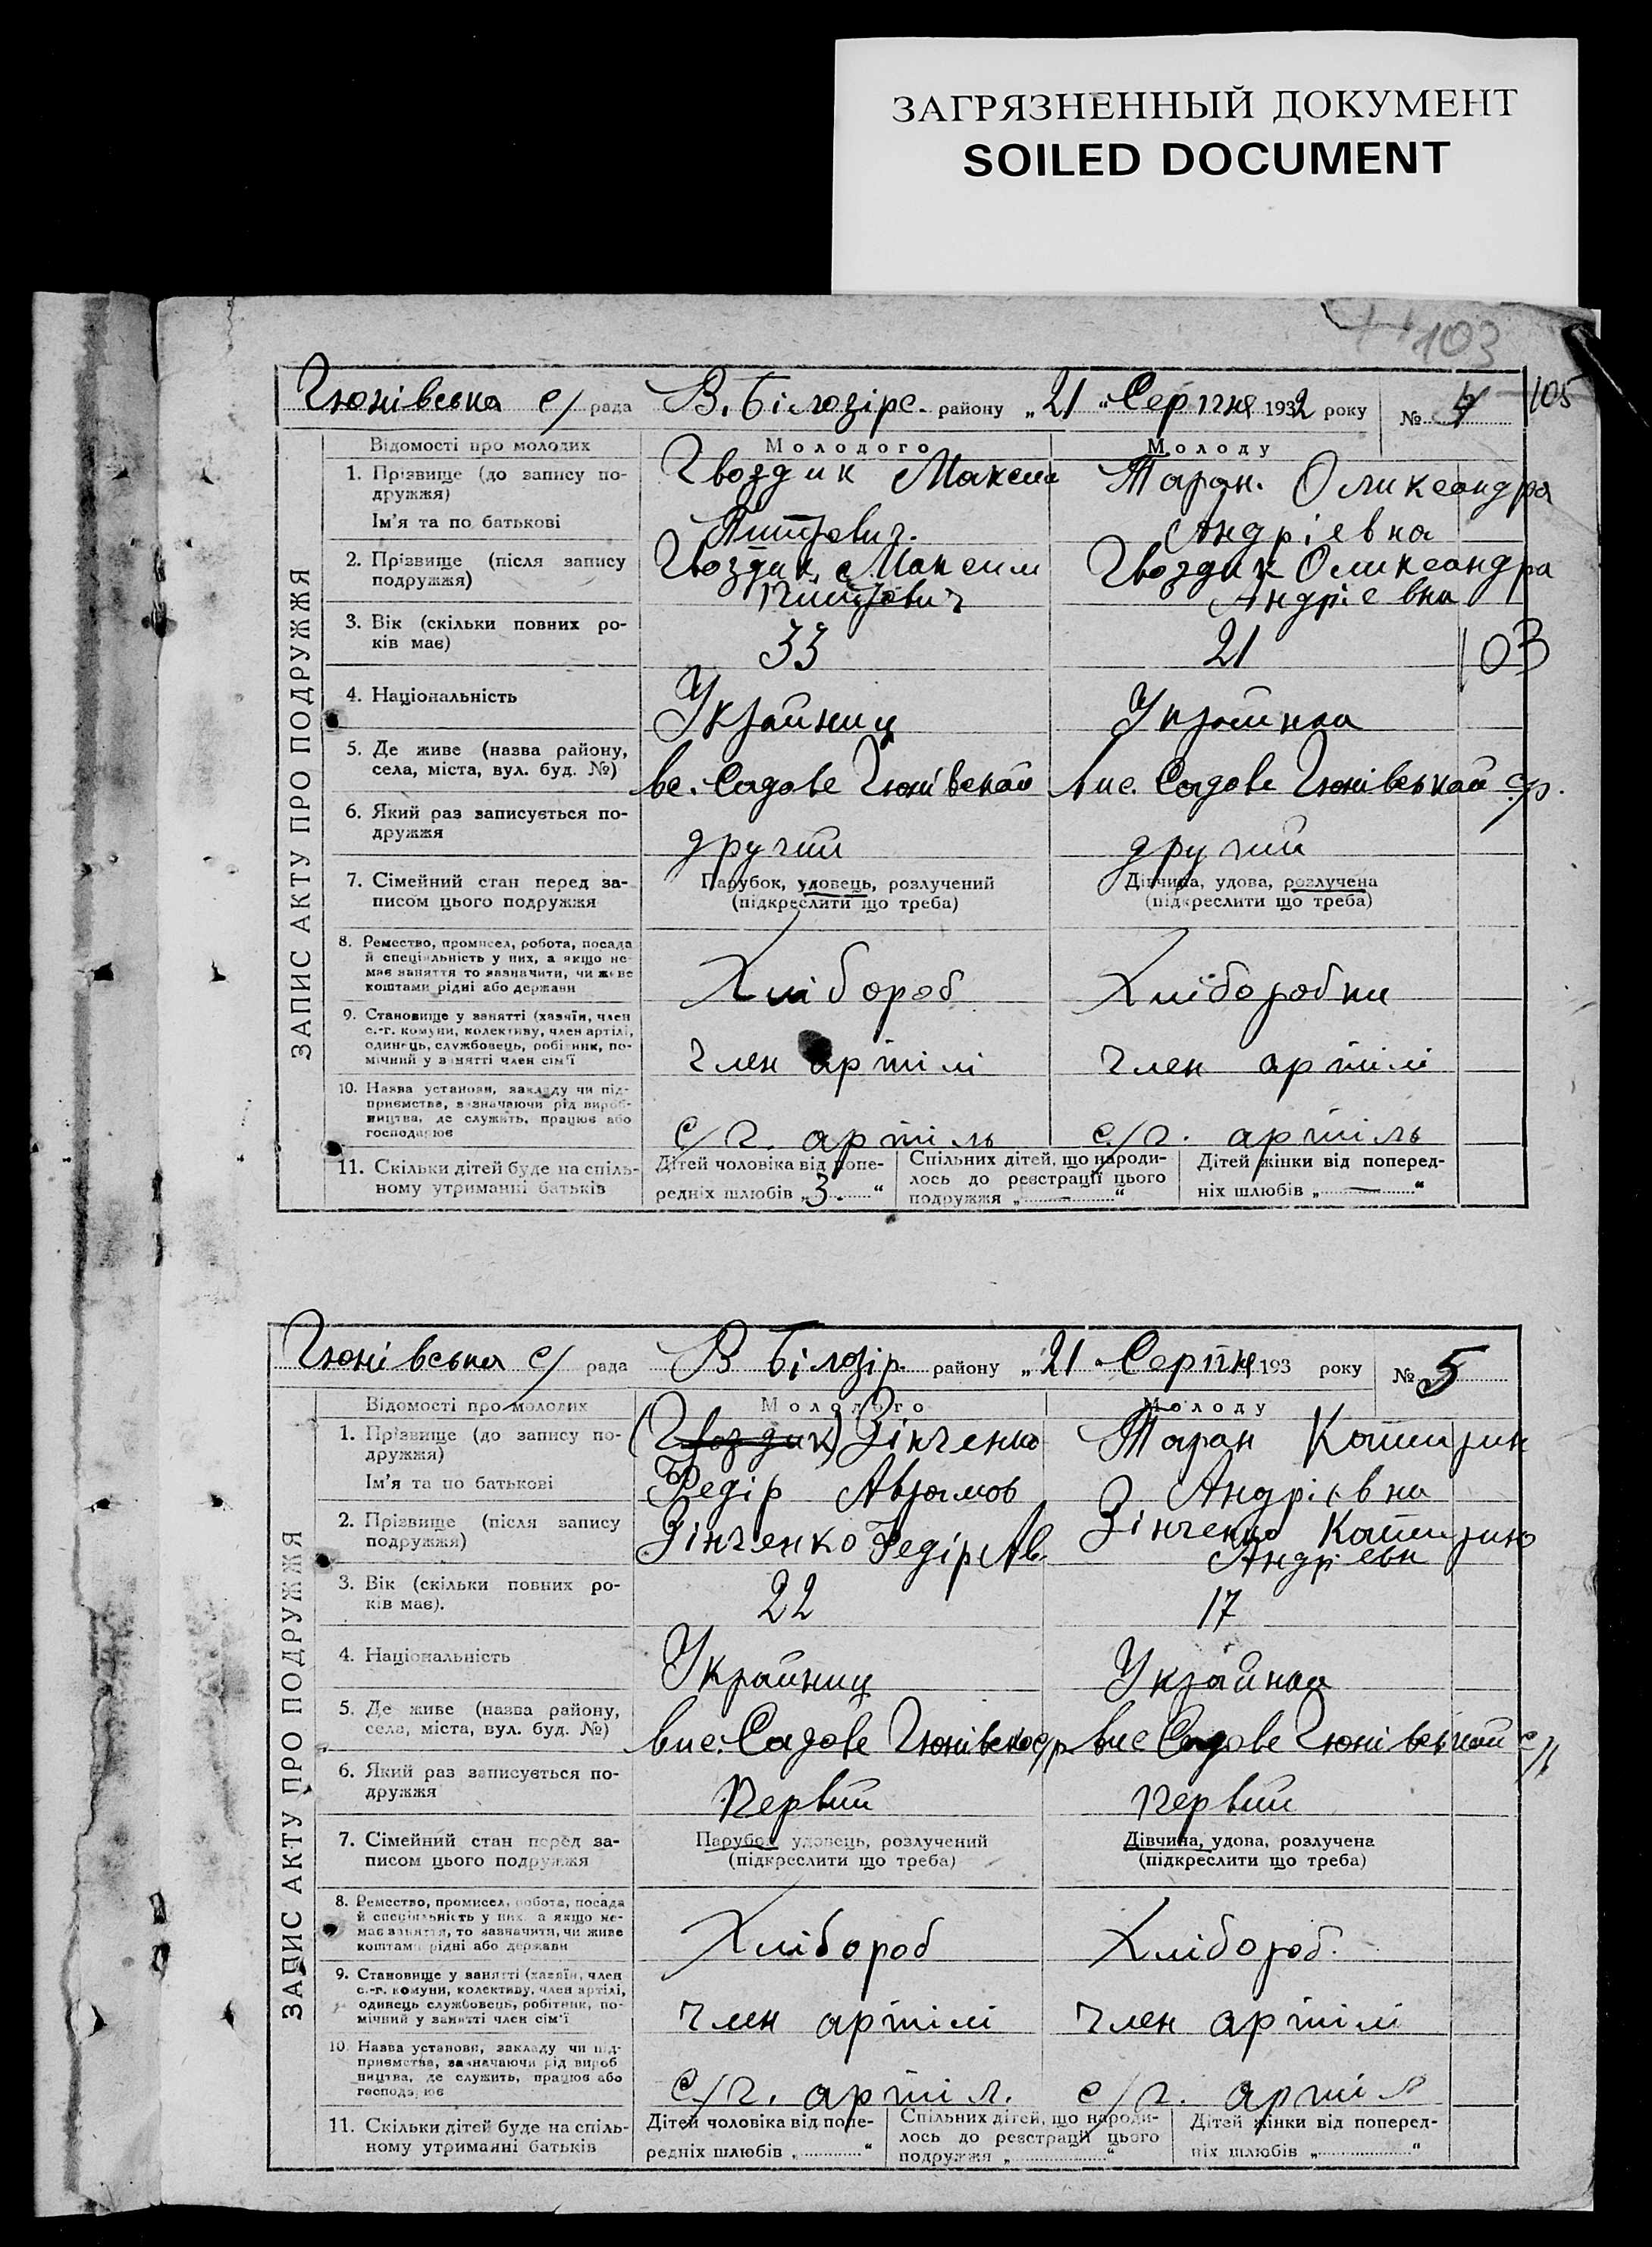 ЗАГРЯЗНЕННЫЙ ДОКУМЕНТ
SOILED DOCUMENT
103
105
Гюнівська с/ рада В. Білозірс. району „21“ Серпня 1932 року № 4
Відомості про молодих Молодого Молоду
1. Прізвище (до запису по-
дружжя)
Гвоздик Максим Таран. Олександра
Ім'я та по батькові
Андріевна
2. Прізвище (після запису
подружжя)
Гвоздик Максим Гвоздик Олександра
Андріевна
3. Вік (скільки повних ро-
ків має)
33 21 103
4. Національність
Украйниц Украйнка
5. Де живе (назва району,
села, міста, вул. буд. №)
вс. Садове Гюнівской вис. Садове Гюнівськай с/р.
6. Який раз записується по-
дружжя
другий другий
7. Сімейний стан перед за-
писом цього подружжя
Парубок, удовець, розлучений
(підкреслити що треба)
Дівчина, удова, розлучена
(підкреслити що треба)
8. Ремество, промисел, робота, посада
й спеціяльність у них, а якщо не-
має заняття то зазначити, чи живе
коштами рідні або держави
Хлібороб Хлібородка
9. Становище у занятті (хазяїн, член
с.-г. комуни, колективу, член артілі,
одинець, службовець, робітник, по-
мічний у занятті член сім'ї
Член артілі Член артілі
10. Назва установи, закладу чи під-
приємства, зазначаючи рід вироб-
ництва, де служить, працює або
господарює
с/г. артіль с/г. артіль
11. Скільки дітей буде на спіль-
ному утриманні батьків
Дітей чоловіка від попе-
редніх шлюбів „3“
Спільних дітей, що народи-
лось до реєстрації цього
подружжя „—“
Дітей жінки від поперед-
ніх шлюбів „—“
ЗАПИС АКТУ ПРО ПОДРУЖЖЯ
Гюнівська с/ рада В Білозір. району „21“ Серпня 193 року № 5
Відомості про молодих Молодого Молоду
1. Прізвище (до запису по-
дружжя)
(Гвоздик) Зінченко Таран
Ім'я та по батькові
Федір Аврамов Андріевна
2. Прізвище (після запису
подружжя)
Зінченко Федір Ав. Зінченко
3. Вік (скільки повних ро-
ків має).
22 17
4. Національність
Украйниц Украйнка
5. Де живе (назва району,
села, міста, вул. буд. №)
вис. Садове с/р вис Садове с/р
6. Який раз записується по-
дружжя
Первий первий
7. Сімейний стан перед за-
писом цього подружжя
Парубок, удовець, розлучений
(підкреслити що треба)
Дівчина, удова, розлучена
(підкреслити що треба)
8. Ремество, промисел, робота, посада
й спеціяльність у них, а якщо не-
має заняття, то зазначити, чи живе
коштами рідні або держави
Хлібороб Хлібороб.
9. Становище у занятті (хазяїн, член
с.-г. комуни, колективу, член артілі,
одинець службовець, робітник, по-
мічний у занятті член сім'ї
Член артілі Член артілі
10. Назва установи, закладу чи під-
приємства, зазначаючи рід вироб
ництва, де служить, працює або
господарює
с/г. артіл. с/г. артіл
11. Скільки дітей буде на спіль-
ному утриманні батьків
Дітей чоловіка від попе-
редніх шлюбів „“
Спільних дітей, що народи-
лось до реєстрації цього
подружжя „“
Дітей жінки від поперед-
ніх шлюбів „“
ЗАПИС АКТУ ПРО ПОДРУЖЖЯ